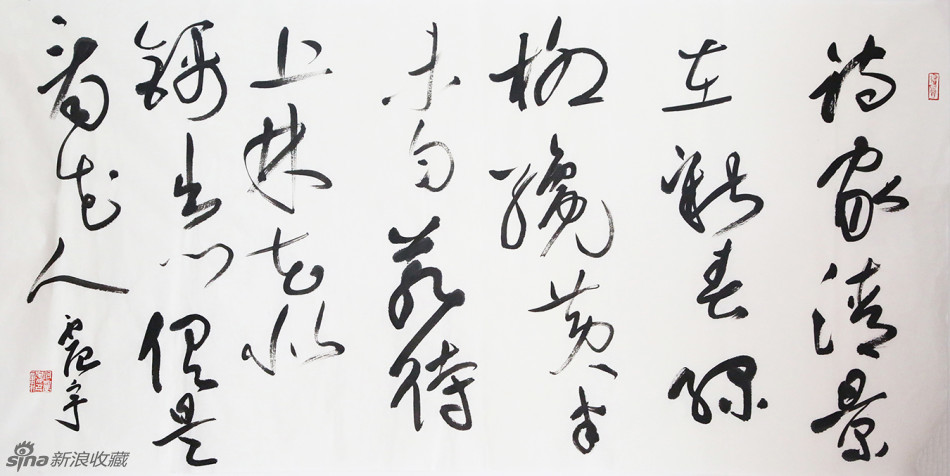 诗家清景
在新春绿
柳纔黄半
未匀若待
上林花似
锦出门俱是
看花人
sina新浪收藏